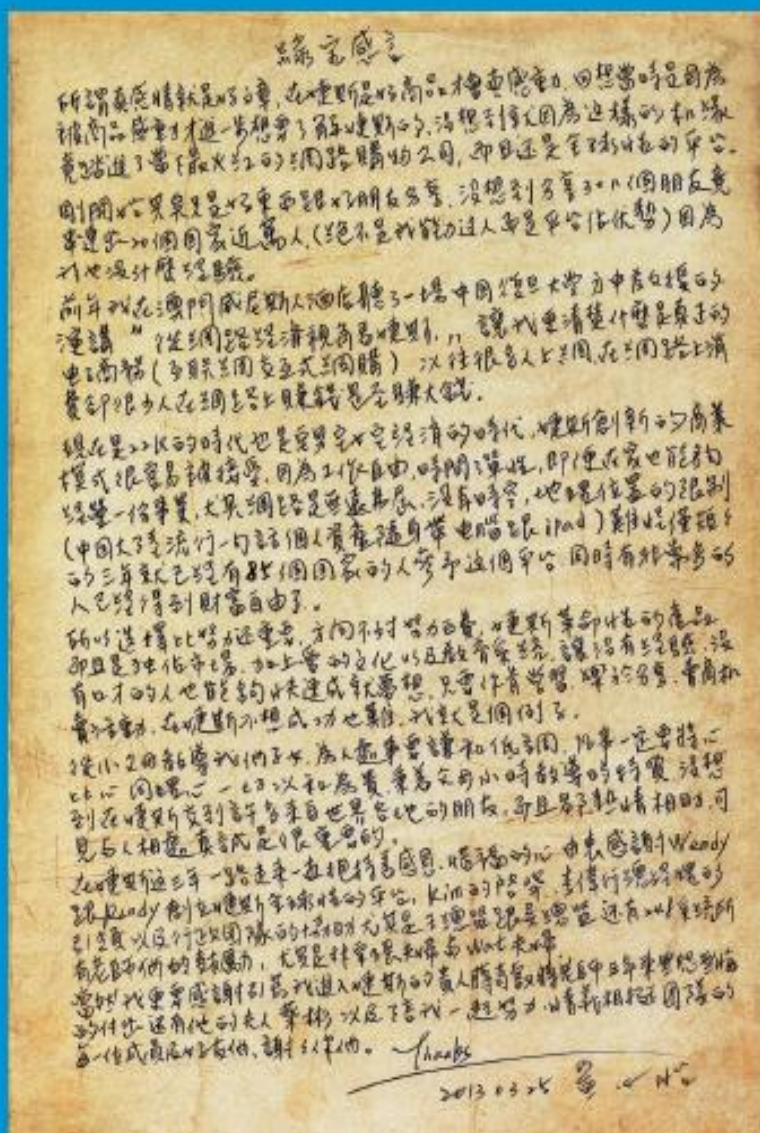 感言
所謂真感情就是好文章,在婕斯是好商品才會真感動,回想當時是因為
被商品感動才進一步想要了解婕斯的,沒想到就因為這樣的机緣
竟踏進了當下最火红的網路購物公司,而且还是全球性的平台。
剛開始只是好東西跟好朋友分享,沒想到分享30个個朋友竟
串連出20個國家近萬人,(絕不是我能力过人而是平台佔优勢)因為
我也沒什麼經驗。
前年我在澳門威尼斯人酒店聽了一場中国復旦大学方中教授的
演講"從網路經濟視角看婕斯",讓我更清楚什麼是真正的
电子商務(互联網交互式網購)以往很多人上網,在網路上消
費却很少人在網路上賺錢是否賺大錢。
現在是22K的時代也是宅男宅女宅經濟的時代,婕斯創新的商業
模式很容易被接受,因為工作自由,時間彈性,即便在家也能夠
經營一份事業,尤其網路是無遠弗屆,沒有時空,地理位置的限制
(中国大陸流行一句話個人資產隨身帶电腦跟ipad)難怪僅短短
的三年就已經有85個國家的人參与這個平台同時有非常多的
人已經得到財富自由了。
所以選擇比努力还重要,方向不对努力白費,婕斯革命性的產品
而且是独佔市場,加上愛的文化以及教育系統,讓沒有經驗,沒
有口才的人也能夠快速成就夢想,只要你肯学習,樂於分享,肯
活動,在婕斯不想成功也難,我就是個例子。
從小父母教導我們子女,為人處事要謙和低調,凡事一定要將心
比心同理心一切以和為貴,秉著父母小時教導的特質,沒想
到在婕斯交到許多來自世界各地的朋友,而且各个熱情相助,可
見与人相處真誠是很重要的。
在婕斯這三年一路走來一直抱持著感恩,惜福的心由衷感謝Wendy
跟Randy創立婕斯全球性的平台,Kim的啓發,李偉行總經理的
引領以及行政團隊的協助尤其是王總監跟吳總監还有248系統所
有老師們的鼓勵,尤其是非常恩夫婦与Wat夫婦
當然我更要感謝引荐我進入婕斯的貴人
的付出还有他的夫人以及下含我一起努力,情義相挺團隊的
每一位成員好有你們,謝謝你們。Thanks
2013 03 25